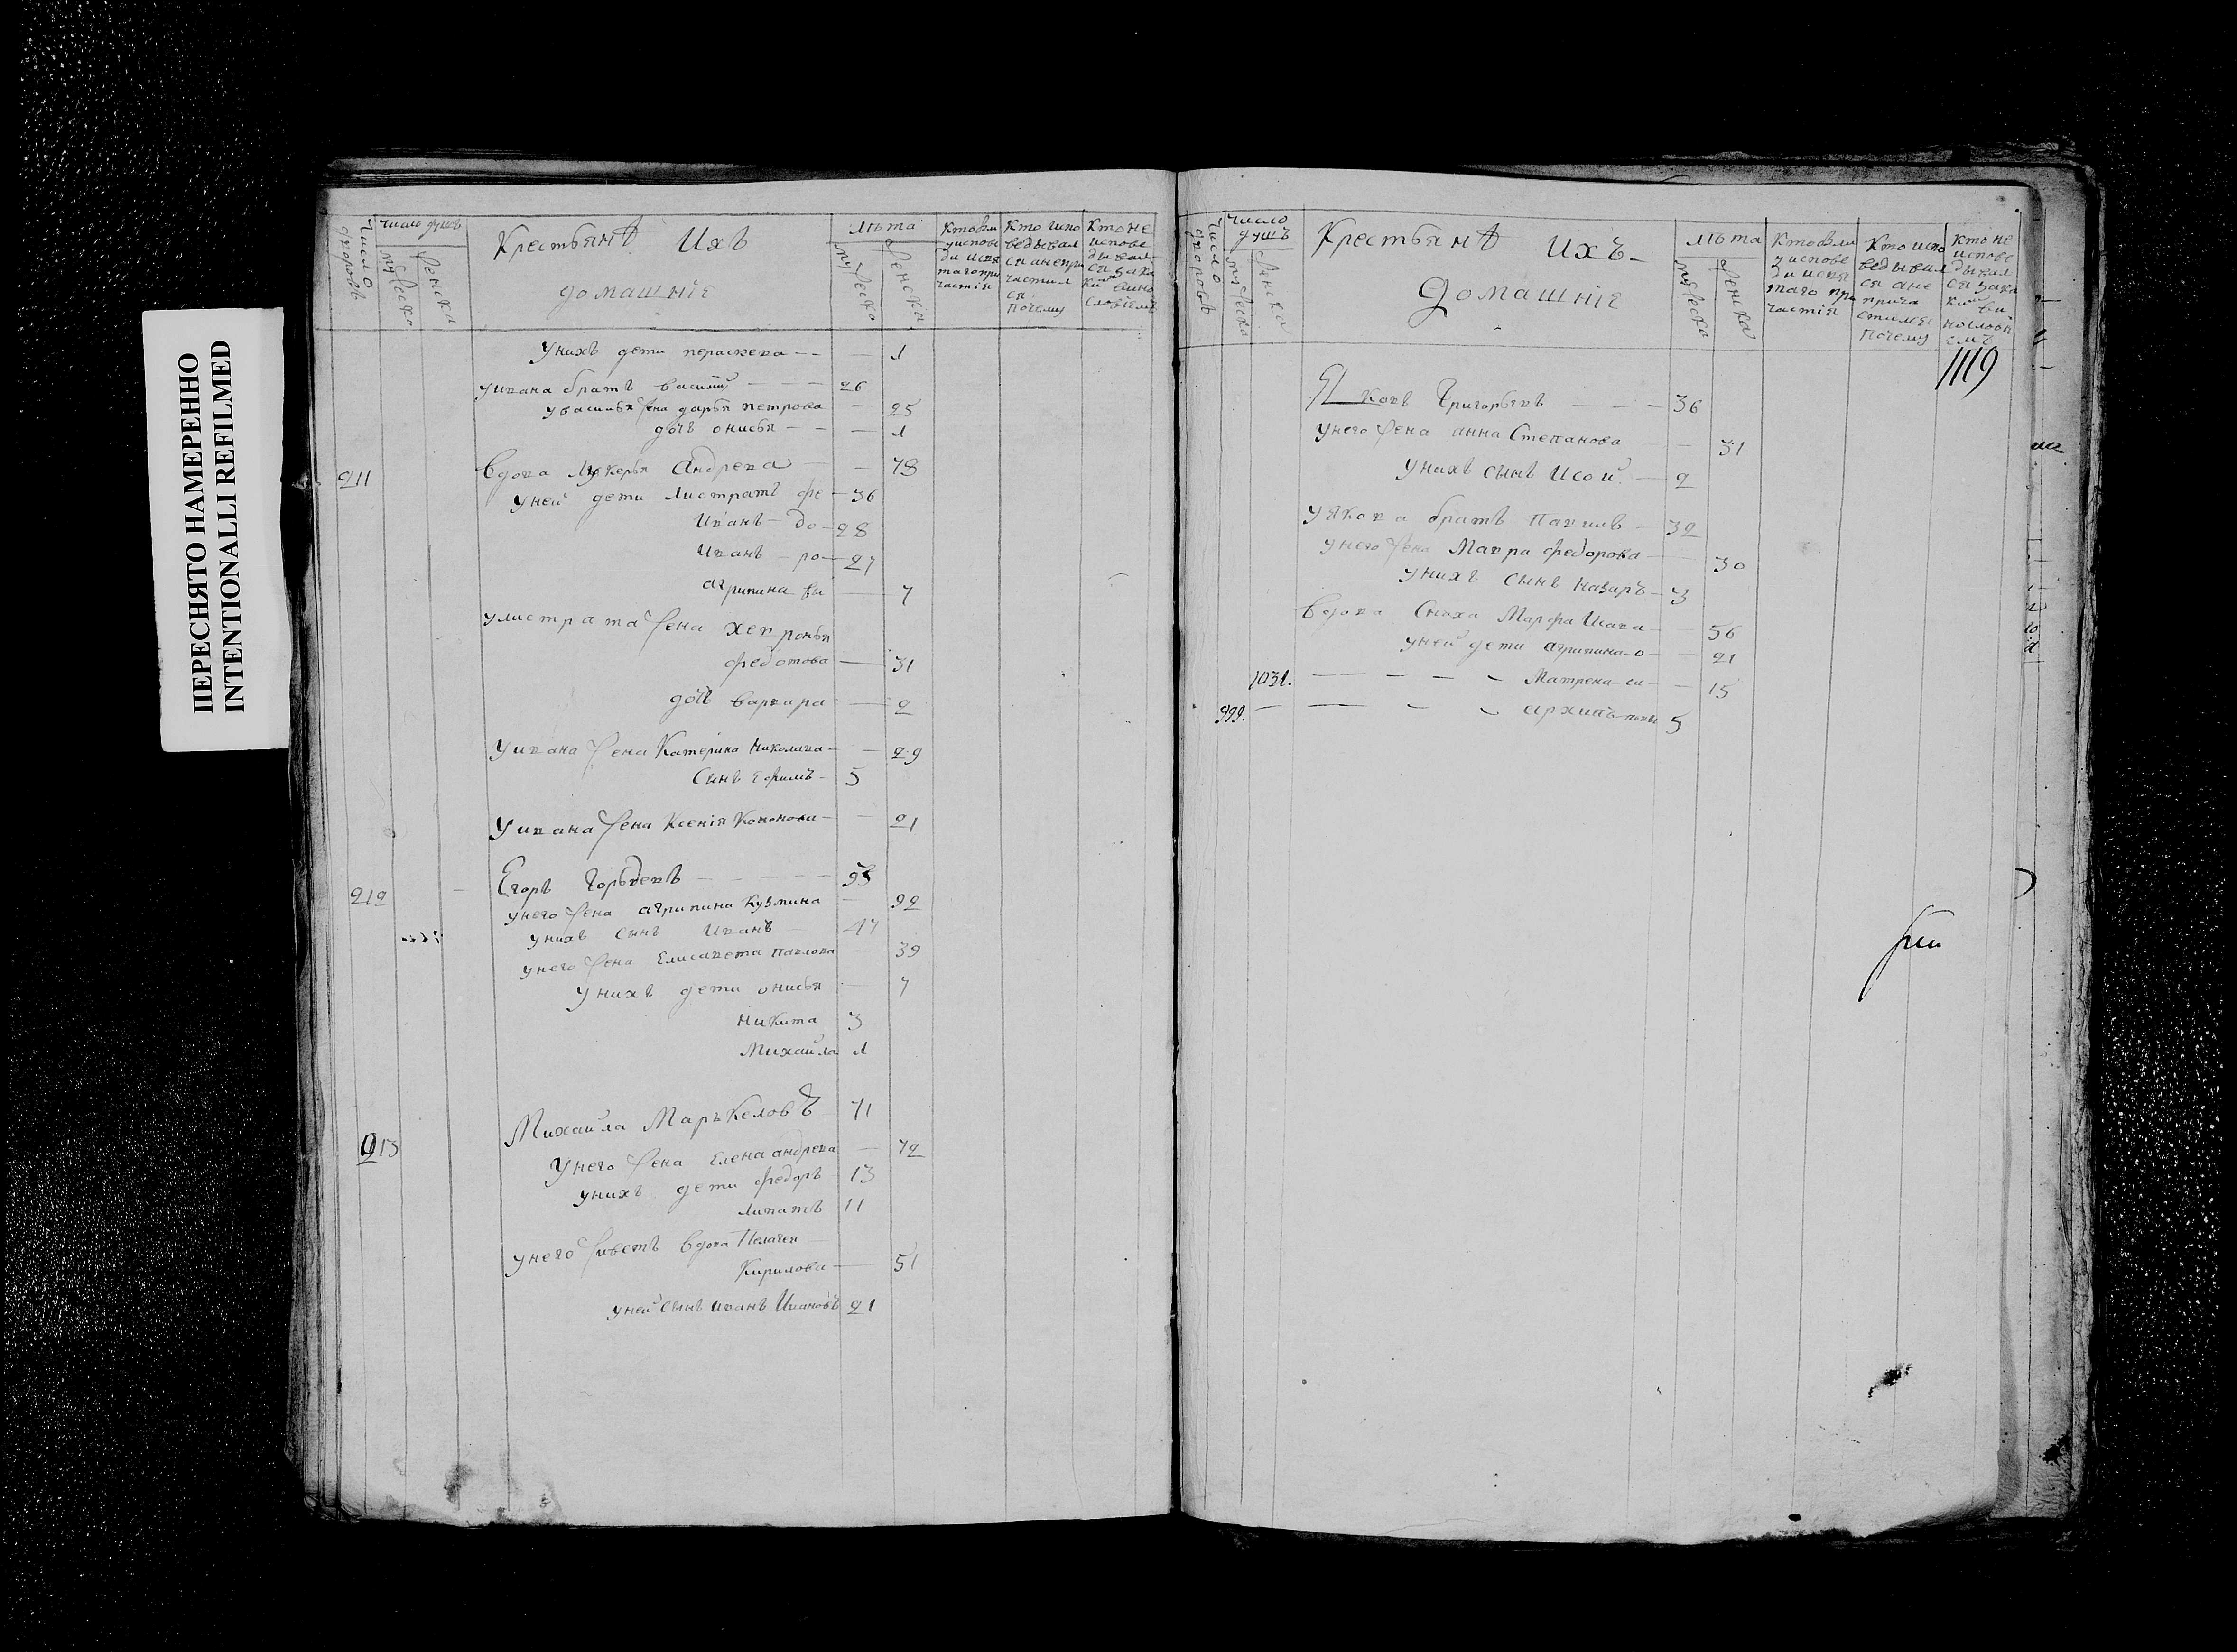 ПЕРЕСНЯТО НАМЕРЕННО
INTENTIONALLI REFILMED
число дворовъ
число душъ
мужеска
женска
Крестьянѣ Ихъ
домашніе
лѣта
мужеска
женска
Кто были
у испове
ди и свя
таго при
частія
Кто испо
ведывал
ся а не при
частил
ся
почему
Кто не
испове
дывал
ся
унихъ дети пераскева — — — 1
уивана братъ василий — — — 26
увасилья жена дарья петрова — 25
дочь онисья — — — 1
211 Вдова Лукерья Андрева — — 78
уней дети Листратъ — 36
Иванъ — 28
Иванъ — 27
агрипина — 7
улистрата жена
федотова — 31
дочь варвара — 2
уивана жена Катерина Николава — — 29
Сынъ Ефимъ — 5
уивана жена Ксенія Кононова — — 21
212 Егоръ
унего жена агрипина Кузмина — 92
унихъ сынъ Иванъ — 47
унего жена Елисавета павлова — 39
унихъ дети онисья — 7
никита 3
Михайла 1
213 Михайла Марькеловъ 71
унего жена Елена андрева — 72
унихъ дети федоръ 13
11
унего вдова Пелагея —
Кирилова — 51
уней сынъ иванъ Ивановъ 21
число дворовъ
число душъ
мужеска
женска
Крестьянѣ ихъ
домашніе
лѣта
мужеска
женска
Кто были
у испове
ди и свя
таго при
частія
Кто испо
ведывал
ся а не
прича
стился
почему
Кто не
испове
дывал
ся за ка
ким ви
нословi
емъ
1119
Яковъ Григорьевъ — — — 36
унего жена анна Степанова — — 31
унихъ сынъ — 2
уякова братъ павилъ — 32
унего жена Мавра федорова — — 30
унихъ сынъ назаръ — 3
вдова Сноха Марфа — — 56
уней дети агрипина — — 21
1031. — — — — — Матрена — — 15
999. — — — — архипъ 5